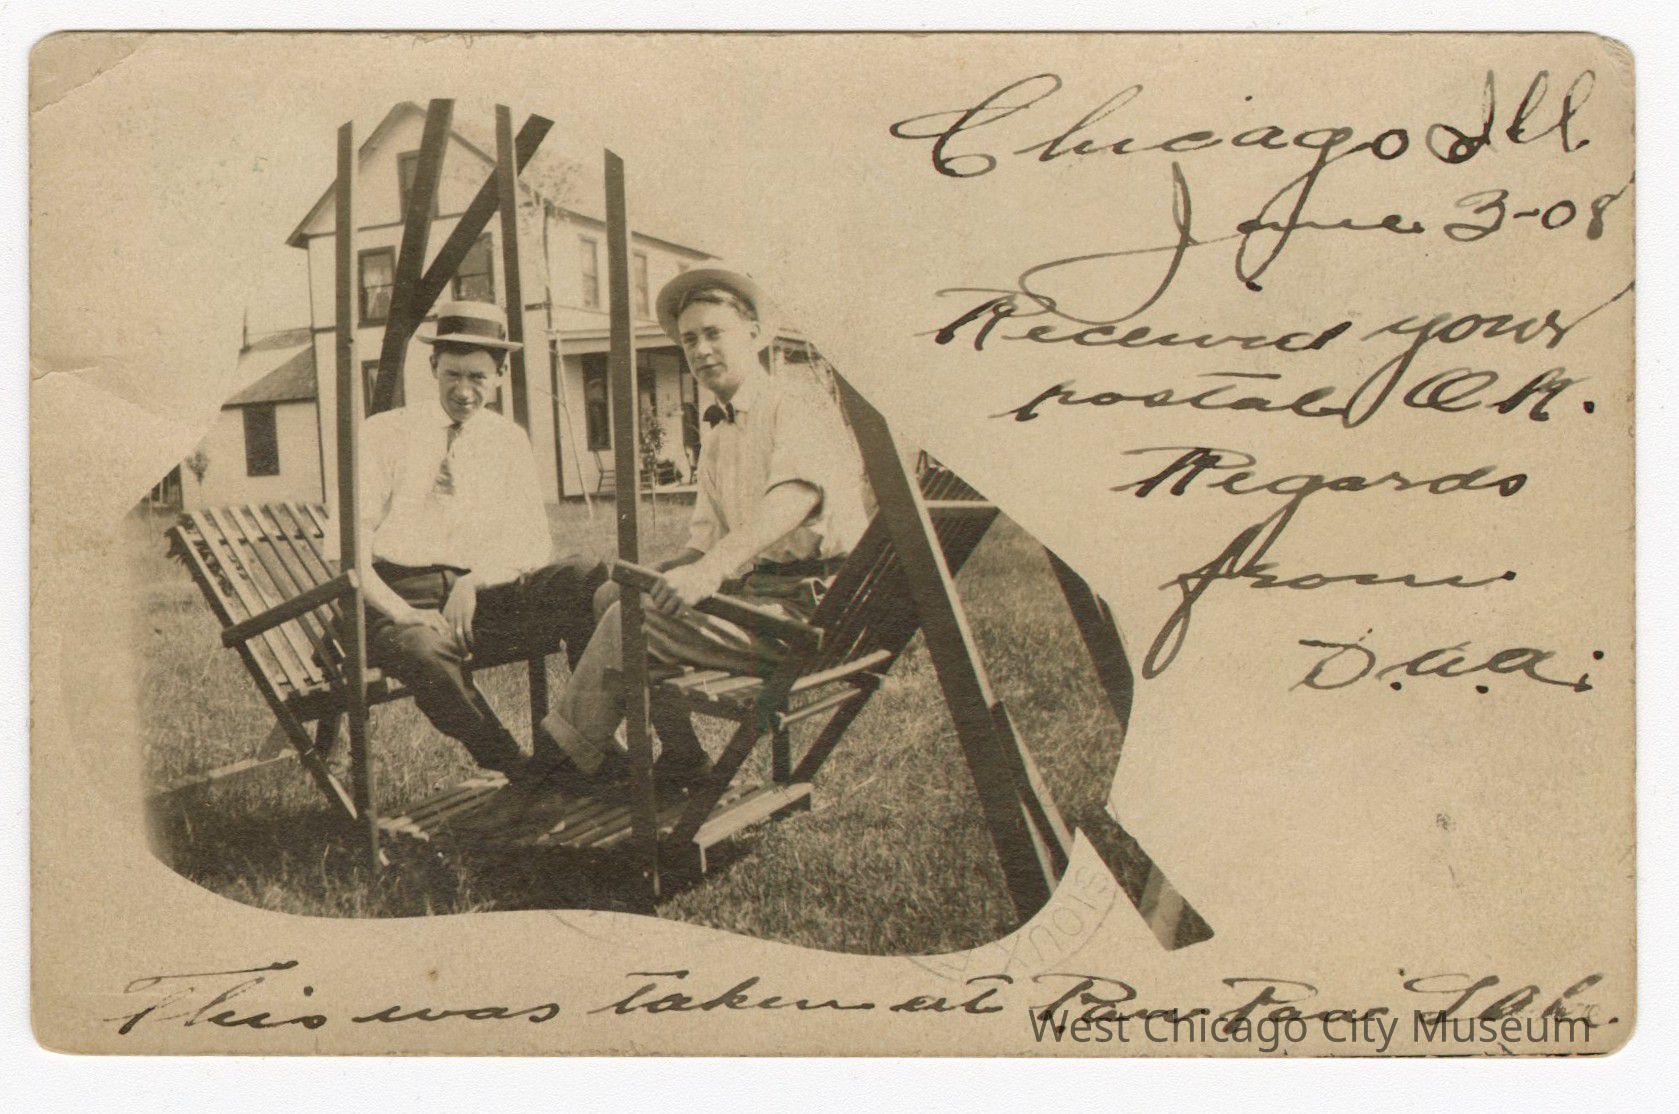 Chicago Ill.
June 3-08
Received your
postal O.K.
Regards
from
D.W.A.
This was taken at Paw Paw Lake.
West Chicago City Museum